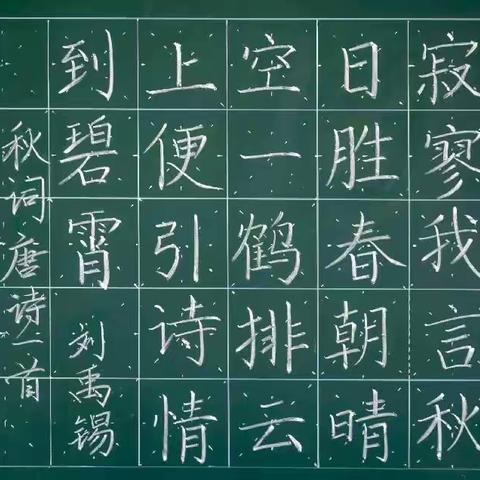 寂寥我言秋
日胜春朝晴
空一鹤排云
上便引诗情
到碧霄
刘禹锡
秋词唐诗一首